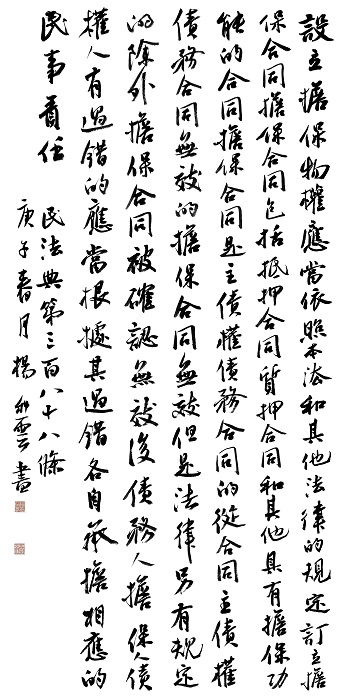 設立擔保物權應當依照本法和其他法律的規定訂立擔
保合同擔保合同包括抵押合同質押合同和其他具有擔保功
能的合同擔保合同是主債權債務合同的從合同主債權
債務合同無效的擔保合同無效但是法律另有規定
的除外擔保合同被確認無效後債務人擔保人債
權人有過錯的應當根據其過錯各自承擔相應的
民事責任
民法典第三百八十八條
庚子春月楊雲書